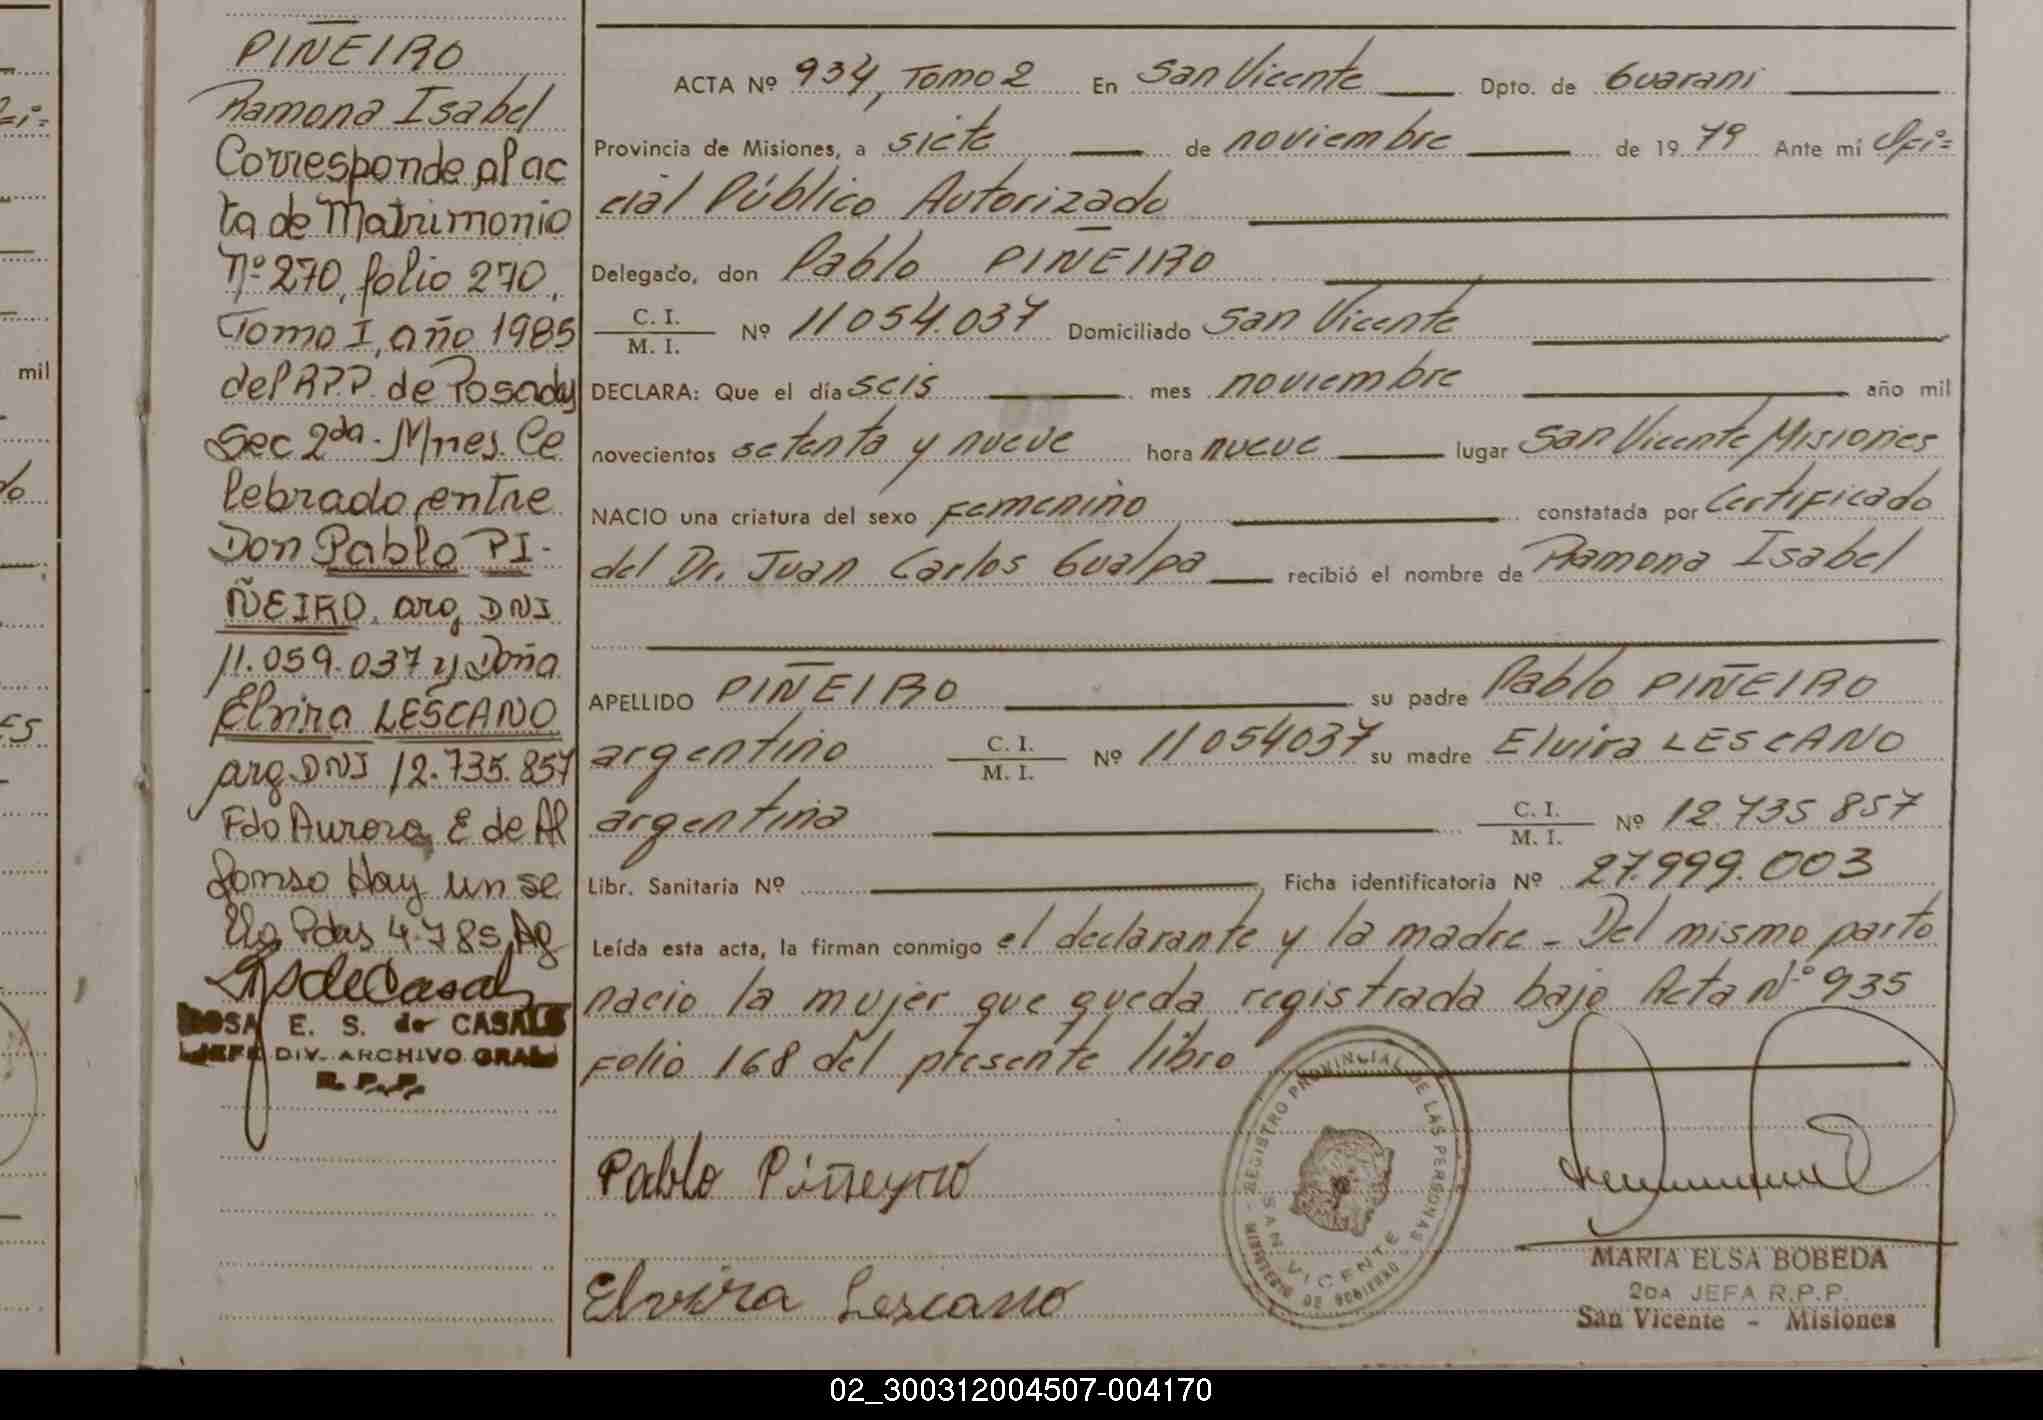 PIÑEIRO
Ramona Isabel
Corresponde al ac
ta de Matrimonio
Nº 270, folio 270,
Tomo I, año 1985
del R.P.P. de Posadas
Sec 2da. Mnes. Ce
lebrado entre
Don Pablo PI-
ÑEIRO, arg DNI
11.059.037 y Doña
Elvira LESCANO
arg DNI 12.735.857
Fdo Aurora E de Al
fonso Hay un se
llo Pdas 4.7.85
ROSA E. S. de CASALS
JEFE DIV. ARCHIVO GRAL
R. P. P.
ACTA Nº 934, Tomo 2 En San Vicente Dpto. de Guarani
Provincia de Misiones, a siete de noviembre de 1979 Ante mí Ofi=
cial Público Autorizado
Delegado, don Pablo PIÑEIRO
C. I. / M. I. Nº 11054.037 Domiciliado San Vicente
DECLARA: Que el día seis mes noviembre año mil
novecientos setenta y nueve hora nueve lugar San Vicente Misiones
NACIO una criatura del sexo femenino constatada por Certificado
del Dr. Juan Carlos Gualpa recibió el nombre de Ramona Isabel
APELLIDO PIÑEIRO su padre Pablo PIÑEIRO
argentino C. I. / M. I. Nº 11054037 su madre Elvira LESCANO
argentina C. I. / M. I. Nº 12.735 857
Libr. Sanitaria Nº Ficha identificatoria Nº 27.999.003
Leída esta acta, la firman conmigo el declarante y la madre - Del mismo parto
nacio la mujer que queda registrada bajo Acta Nº 935
Folio 168 del presente libro
Pablo Piñeyro
Elvira Lescano
REGISTRO PROVINCIAL DE LAS PERSONAS
SAN VICENTE
MINISTERIO DE GOBIERNO
MARIA ELSA BOBEDA
2DA JEFA R.P.P.
San Vicente - Misiones
mil
02_300312004507-004170